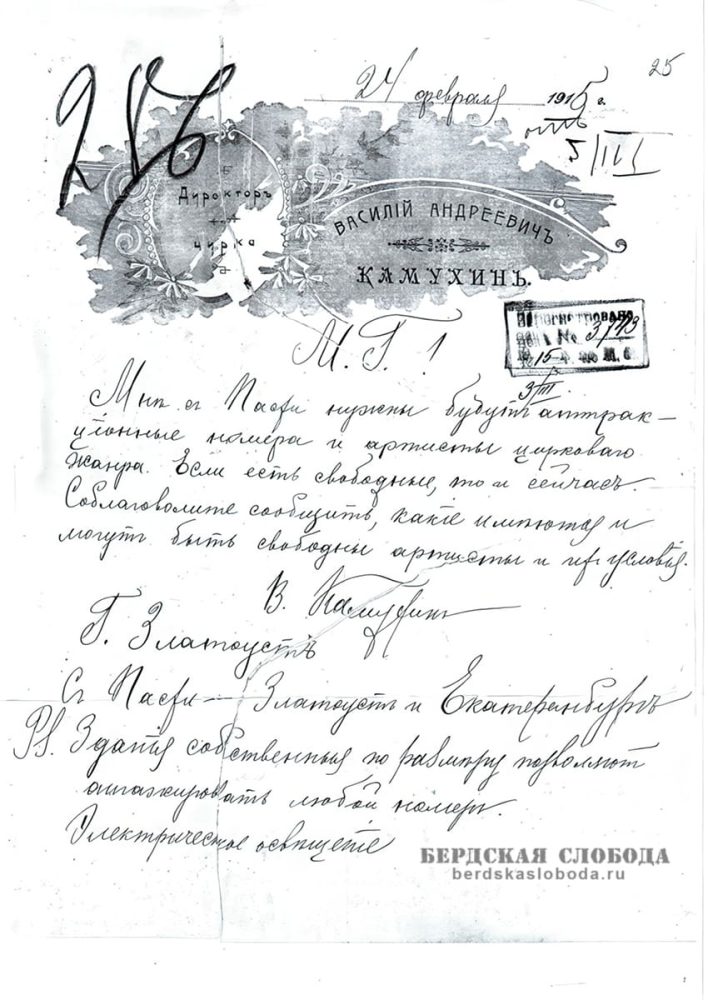 25
286
24 февраля 1915 г.
отв
5/III
Директоръ
цирка
ВАСИЛІЙ АНДРЕЕВИЧЪ
КАМУХИНЪ.
№ 3743
15
3/III
М. Г. !
Мнѣ съ Пасхи нужны будутъ аттрак-
ціонные номера и артисты цирковаго
жанра. Если есть свободные, то и сейчасъ.
Соблаговолите сообщить, какіе имѣются и
могутъ быть свободны артисты и ихъ условія.
В. Камухинъ
Г. Златоустъ
Съ Пасхи — Златоустъ и Екатеринбургъ
PS. Зданія собственныя по размѣру позволяютъ
ангажировать любой номеръ.
Электрическое освѣщеніе
БЕРДСКАЯ СЛОБОДА
berdskasloboda.ru